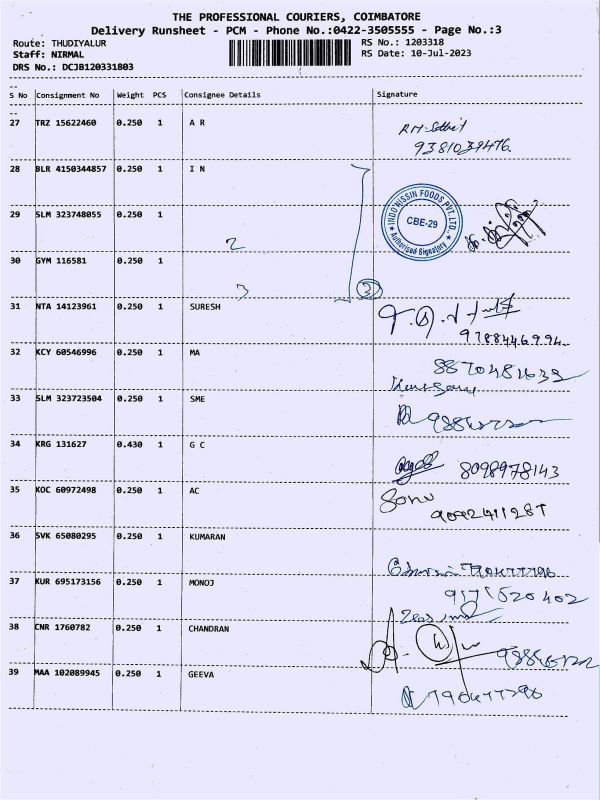 THE PROFESSIONAL COURIERS, COIMBATORE
Delivery Runsheet - PCM - Phone No.:0422-3505555 - Page No.:3
Route: THUDIYALUR RS No.: 1203318
Staff: NIRMAL RS Date: 10-Jul-2023
DRS No.: DCJB120331803
S No Consignment No Weight PCS Consignee Details Signature
27 TRZ 15622460 0.250 1 A R
9381039476
28 BLR 4150344857 0.250 1 I N
INDO NISSIN FOODS PVT. LTD.
CBE-29
Authorised Signatory
29 SLM 323748055 0.250 1
2
30 GYM 116581 0.250 1
3 3
31 NTA 14123961 0.250 1 SURESH
9788446994
32 KCY 60546996 0.250 1 MA
8870481632
33 SLM 323723504 0.250 1 SME
34 KRG 131627 0.430 1 G C
8098978143
35 KOC 60972498 0.250 1 AC
Sonu
9092411287
36 SVK 65080295 0.250 1 KUMARAN
37 KUR 695173156 0.250 1 MONOJ
9171520402
38 CNR 1760782 0.250 1 CHANDRAN
39 MAA 102089945 0.250 1 GEEVA